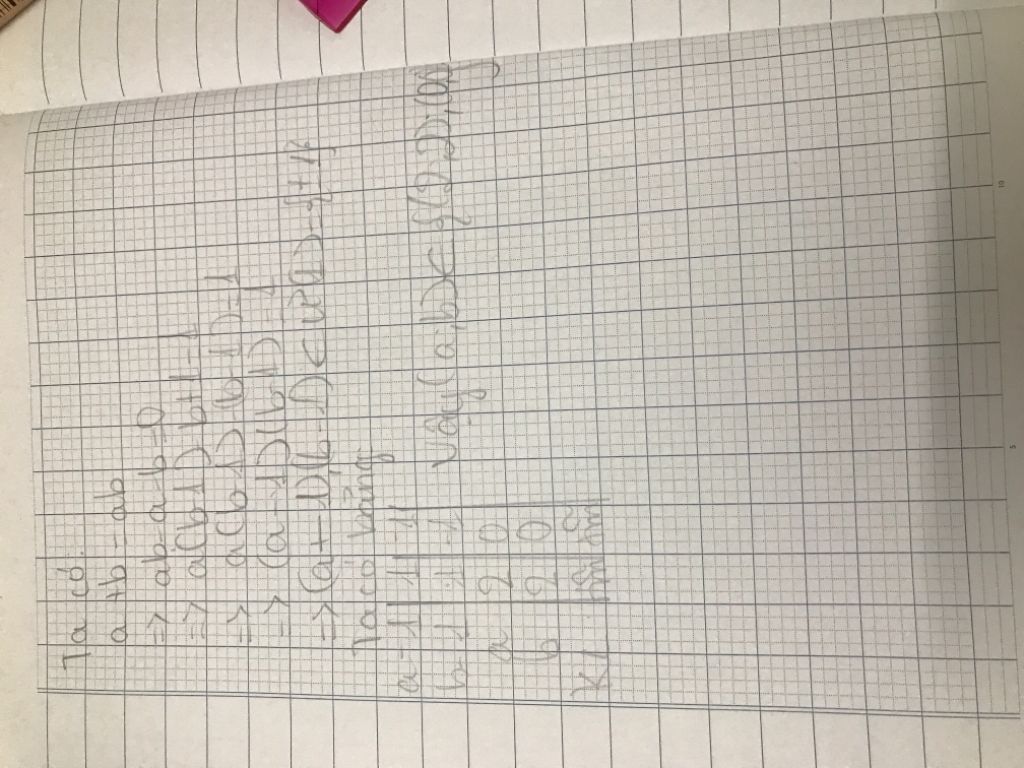 Ta có:
a+b=ab
=> ab-a-b=0
=> a(b-1)-b+1=1
=> a(b-1)-(b-1)=1
=> (a-1)(b-1)=1
=> (a-1)(b-1)∈Ư(1)={±1}
Ta có bảng
a-1 1 -1
b-1 1 -1
a 2 0
b 2 0
Vậy (a;b)∈{(2;2);(0;0)}
5
10